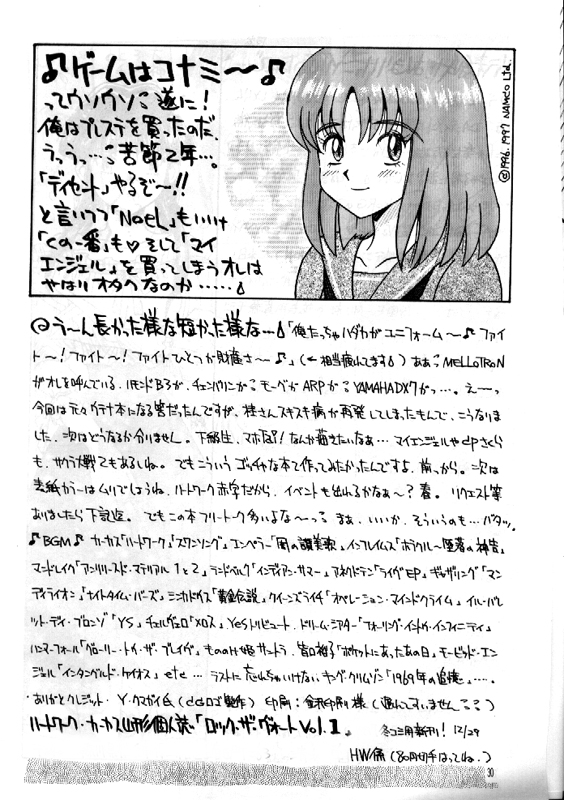 ♪ゲームはコナミ〜♪
ってウソウソ 遂に!
俺はプレステを買ったのだ
うっうっ…苦節2年…。
「ディセント」やるぞ〜!!
と言いつつ「NOëL」もいいけ
「くの一番」も♡そして「マイ
エンジェル」を買ってしまうオレは
やはりオタクなのか……
©1996. 1997 NAMCO Ltd.
う〜ん長かった様な短かった様な…「俺たっちゃハダカがユニフォーム〜♪ファイ
ト〜!ファイト〜!ファイトひとつが財産さ〜♪」(←相当疲れてます)ああMELLOTRON
がオレを呼んでいる、ハモンドB3が、チェンバリンが モーグが ARPが YAMAHA DX7がっ…。えーっ
今回は元々ウテナ本になる筈だったんですが、桂さんスキスキ病が再発してしまったもんで、こうなりま
した、次はどうなるか分りません。下級生、なんか描きたいなあ… マイエンジェルや
も、サクラ大戦てもあるしね。でもこういうゴッチャな本て作ってみたかったんですよ、前っから。次は
表紙カラーはムリでしょうね、ハートワーク赤字だから、イベントも出れるかなぁ〜?春。リクエスト等
ありましたら下記迄。でもこの本フリートーク多いよな〜っ まぁ、いいか、そういうのも…バタッ。
♪BGM♪ カーカス「ハートワーク」「スワンソング」エンペラー「闇の讃美歌」、インフレイムス「ホラクルー
マーンドレイク「アンリリースド・マテリアル1と2」ランドベルク「インディアン・サマー」アネクドテン「ライヴEP」ギャザリング「マン
ディライオン」「ナイトタイム・バーズ」ミンカドゥス「黄金伝説」クイーンズライチ「オペレーション・マインドクライム」イル・バレ
ット・ディ・ブロンゾ「YS」チェルヴェロ「メロス」Yesトリビュート、ドリーム・シアター「フォーリング・イントゥ・インフィニティ」
ハンマーフォール「グローリー・トゥ・ザ・ブレイヴ」もののけ姫サントラ、谷口裕子「ポケットにあったあの日」モービッド・エン
ジェル「インタングルド・ケイオス」etc… ラストに忘れちゃいけないキング・クリムゾン「1969年の追憶」…。
ありがとクレジット・Y・クマガイ氏(ロゴ製作)印刷: 金沢印刷様(遅れてすいません)
ハートワーク・カーカス山形個人誌・「ロック・ザ・ヴォート Vol.1」 冬コミ用新刊! 12/29
HW係(80円切手はってね。)
30